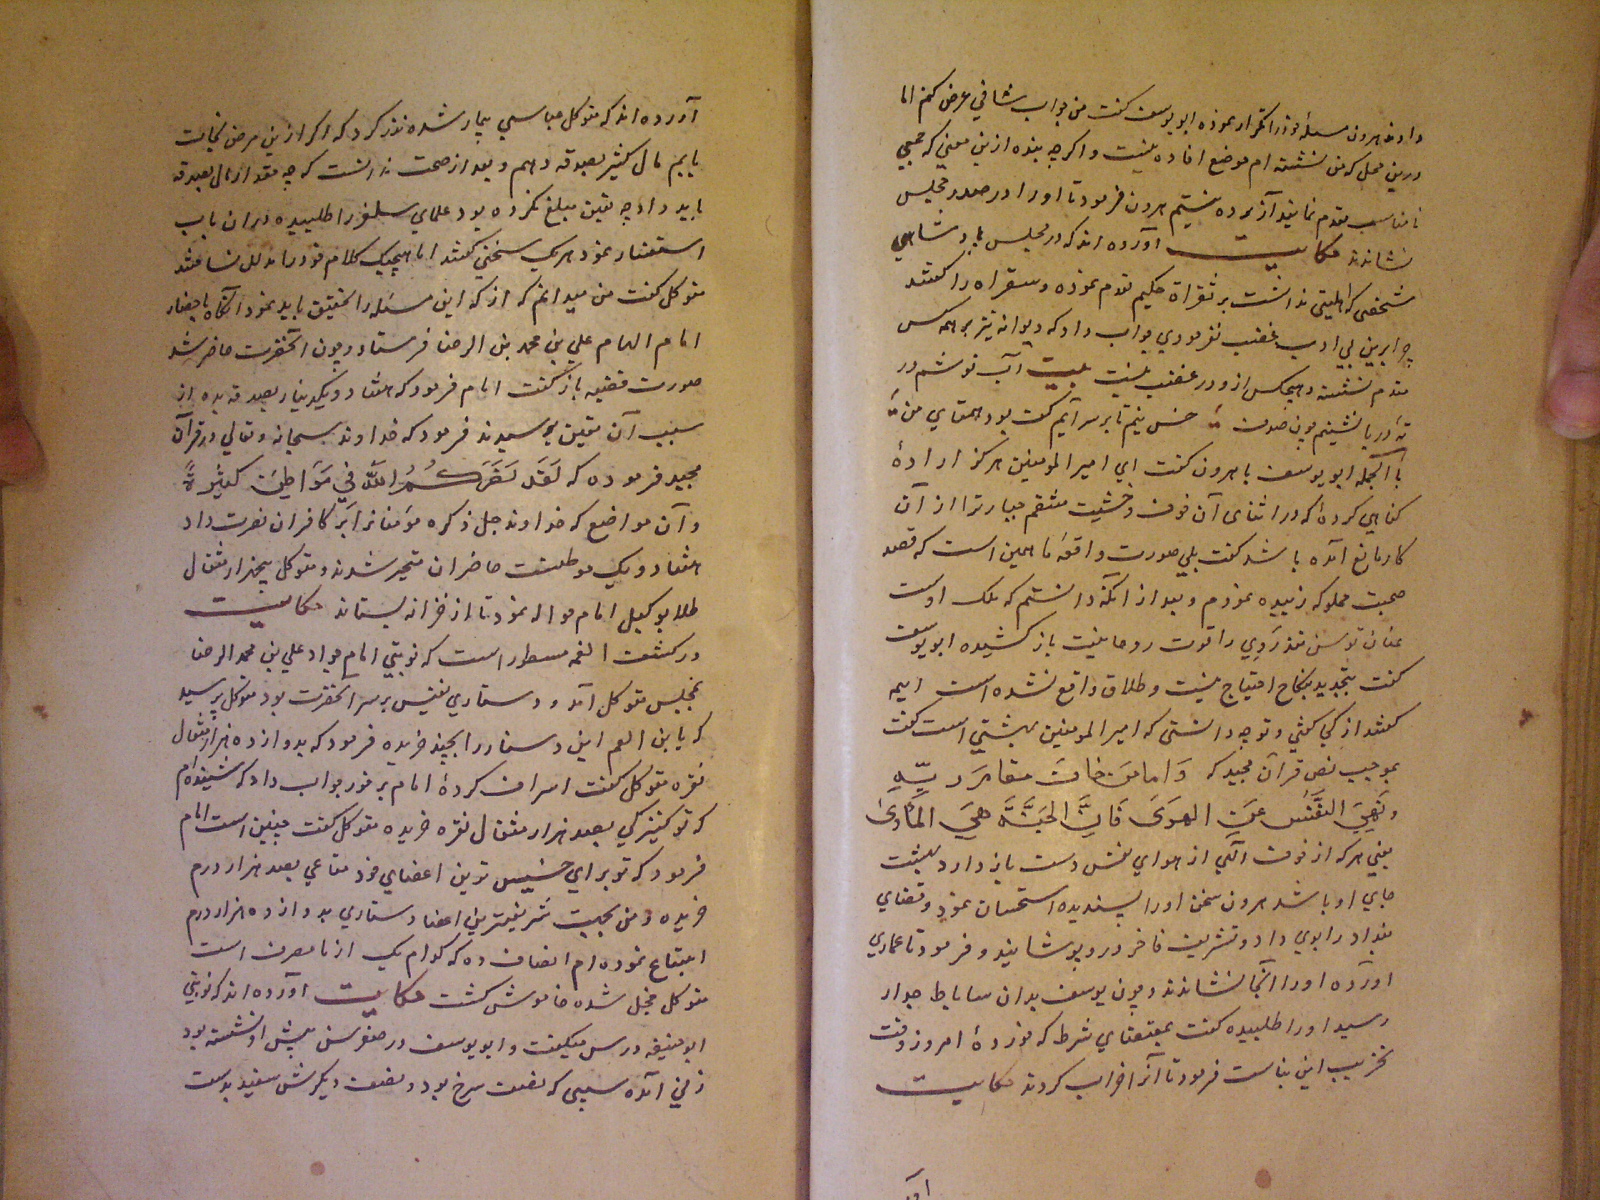 داد هرون مسئله خود را تکرار نموده ابو یوسف گفت من جواب شافی عرض کنم اما
درین محل که من نشسته ام موضع افاده نیست و اکرچه بنده ازین معنی که جمعی
نامناسب مقدم نمایند آزرده نیستم هرون فرمود تا او را در صدر مجلس
نشاندند حکایت آورده اند که در مجلس پادشاهی
شخصی که اهلیتی نداشت بر سقراط حکیم تقدم نموده و سقراط را گفتند
چرا برین بی ادب غضب نفرمودی جواب داد که دیوانه نیز بر همه کس
مقدم نشسته و هیچکس ازو در غضب نیست بیت آب خوشم در
ته دریا نشینم چون صدف خس نیم تا بر سر آیم کفت بود همتای من
بالجمله ابو یوسف با هرون کفت ای امیر المومنین هرکز اراده
کناهی کرده که در اثنای آن خوف و خشیت منتقم جبار ترا از آن
کار مانع آمده باشد کفت بلی صورت واقعه ما همین است که قصد
صحبت مملوکه زبیده نمودم و بعد از آنکه دانستم که ملک اوست
عنان توسن را قوت روحانیت باز کشیده ابو یوسف
کفت بتجدید نکاح احتیاج نیست و طلاق واقع نشده است ایمه
کفتند از کجا کفتی و تو چه دانستی که امیر المومنین بهشتی است کفت
بموجب نص قرآن مجید که وَاما من خاف مقام رَبّه
ونَهَی النَّفْسَ عَنِ الهوَی فَاِنَّ الجَنَّةَ هِیَ المَأوَی
یعنی هر که از خوف الهی از هوای نفس دست باز دارد بهشت
جای او باشد هرون سخن او را پسندیده استحسان نمود و قضای
بغداد را بوی داد و تشریف فاخر درو پوشانید و فرمود تا عماری
آورده او را آنجا نشاندند و چون یوسف بدان ساباط جدار
رسید او را طلبیده کفت بمقتضای شرط که نموده امروز وقت
تخریب این بناست فرمود تا آنرا خراب کردند حکایت
آورده اند که متوکل عباسی بیمار شده نذر کرد که اکر ازین مرض نجات
یابم مال کثیر بصدقه دهم و بعد از صحت ندانست که چه مقدار مال بصدقه
باید داد چه تعین مبلغ نکرده بود علمای را طلبیده دران باب
استفسار نمود هر یک سخنی کفتند اما هیچیک کلام خود را مدلل نساختند
متوکل کفت من میدانم که از که این مسئله را تحقیق باید نمود آنکاه باحضار
امام الهمام علی بن محمد بن الرضا فرستاد و چون آنحضرت حاضر شد
صورت قضیه باز کفت امام فرمود که هشتاد و یک دینار بصدقه بده از
سبب آن تعین پرسیدند فرمود که خداوند سبحانه و تعالی در قرآن
مجید فرموده که لَقَد نَصَرَکُمُ اللّٰهُ فِی مَوَاطِنَ کَثِیرةً
و آن مواضع که خداوند جل ذکره مؤمنانرا بر کافران نصرت داد
هشتاد و یک موطنست حاضران متحیر شدند و متوکل پنجهزار مثقال
طلا بوکیل امام حواله نمود تا از خزانه بستاند حکایت
در کشف الغمه مسطور است که نوبتی امام جواد علی بن محمد الرضا
بمجلس متوکل آمد و دستاری نفیس بر سر آنحضرت بود متوکل پرسید
که یا بن العم این دستار را بچند خریده فرمود که بدوازده هزار مثقال
نقره متوکل کفت اسراف کرده امام بر فور جواب داد که شنیده‌ام
که تو کنیزکی بصد هزار مثقال نقره خریده متوکل کفت چنین است امام
فرمود که تو برای خسیس ترین اعضای خود متاعی بصد هزار درم
خریده و من بجهت شریفترین اعضا دستاری بدوازده هزار درم
ابتیاع نموده ام انصاف ده که کدام یک از ما مصرف است
متوکل خجل شده خاموش کشت حکایت آورده اند که نوبتی
ابو حنیفه درس میکفت و ابو یوسف در صغر سن پیش او نشسته بود
زنی آمده سیبی که نصف سرخ بود و نصف دیکرش سفید بدست